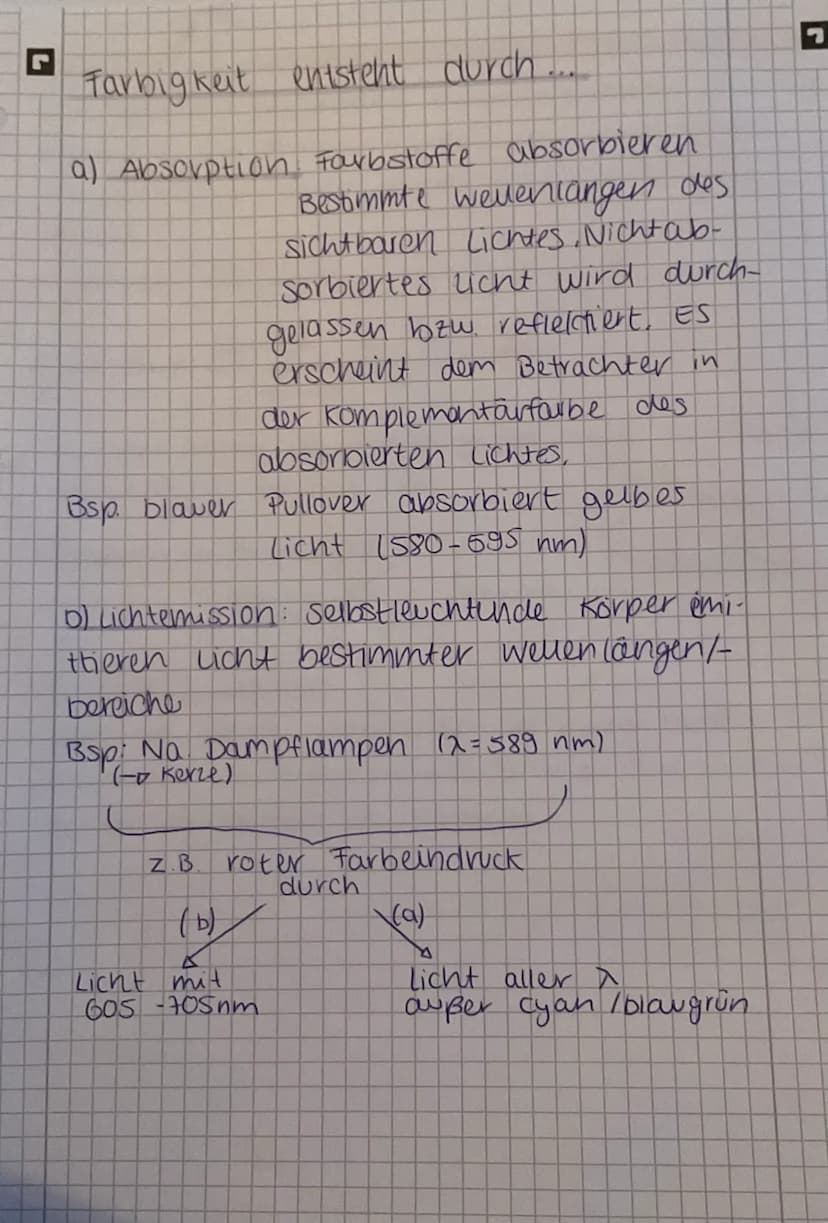 Farbigkeit entsteht durch...
a) Absorption: Farbstoffe absorbieren
Bestimmte Wellenlängen des
sichtbaren Lichtes. Nichtab-
sorbiertes Licht wird durch-
gelassen bzw. reflektiert. Es
erscheint dem Betrachter in
der Komplementärfarbe des
absorbierten Lichtes.
Bsp. blauer Pullover absorbiert gelbes
Licht (580-595 nm)
b) Lichtemission: selbstleuchtende Körper emi-
ttieren Licht bestimmter Wellenlängen/-
bereiche
Bsp: Na Dampflampen (λ=589 nm)
(→ Kerze)
z.B. roter Farbeindruck
durch
(b) (a)
Licht mit licht aller λ
605 -705nm außer cyan /blaugrün